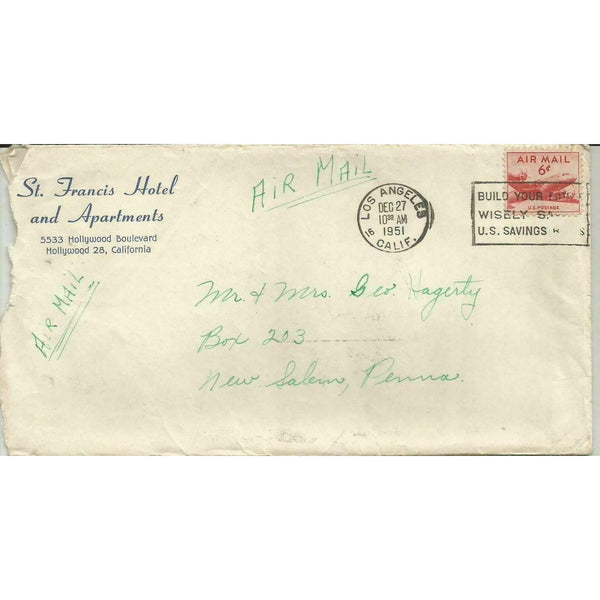 St. Francis Hotel
and Apartments
5533 Hollywood Boulevard
Hollywood 28, California
AIR MAIL
AIR MAIL
LOS ANGELES
DEC 27
10 30 AM
1951
16 CALIF.
AIR MAIL
6¢
U.S. POSTAGE
BUILD YOUR
WISELY
U.S. SAVINGS
Mr. & Mrs. Geo. Hagerty
Box 203
New Salem, Penna.